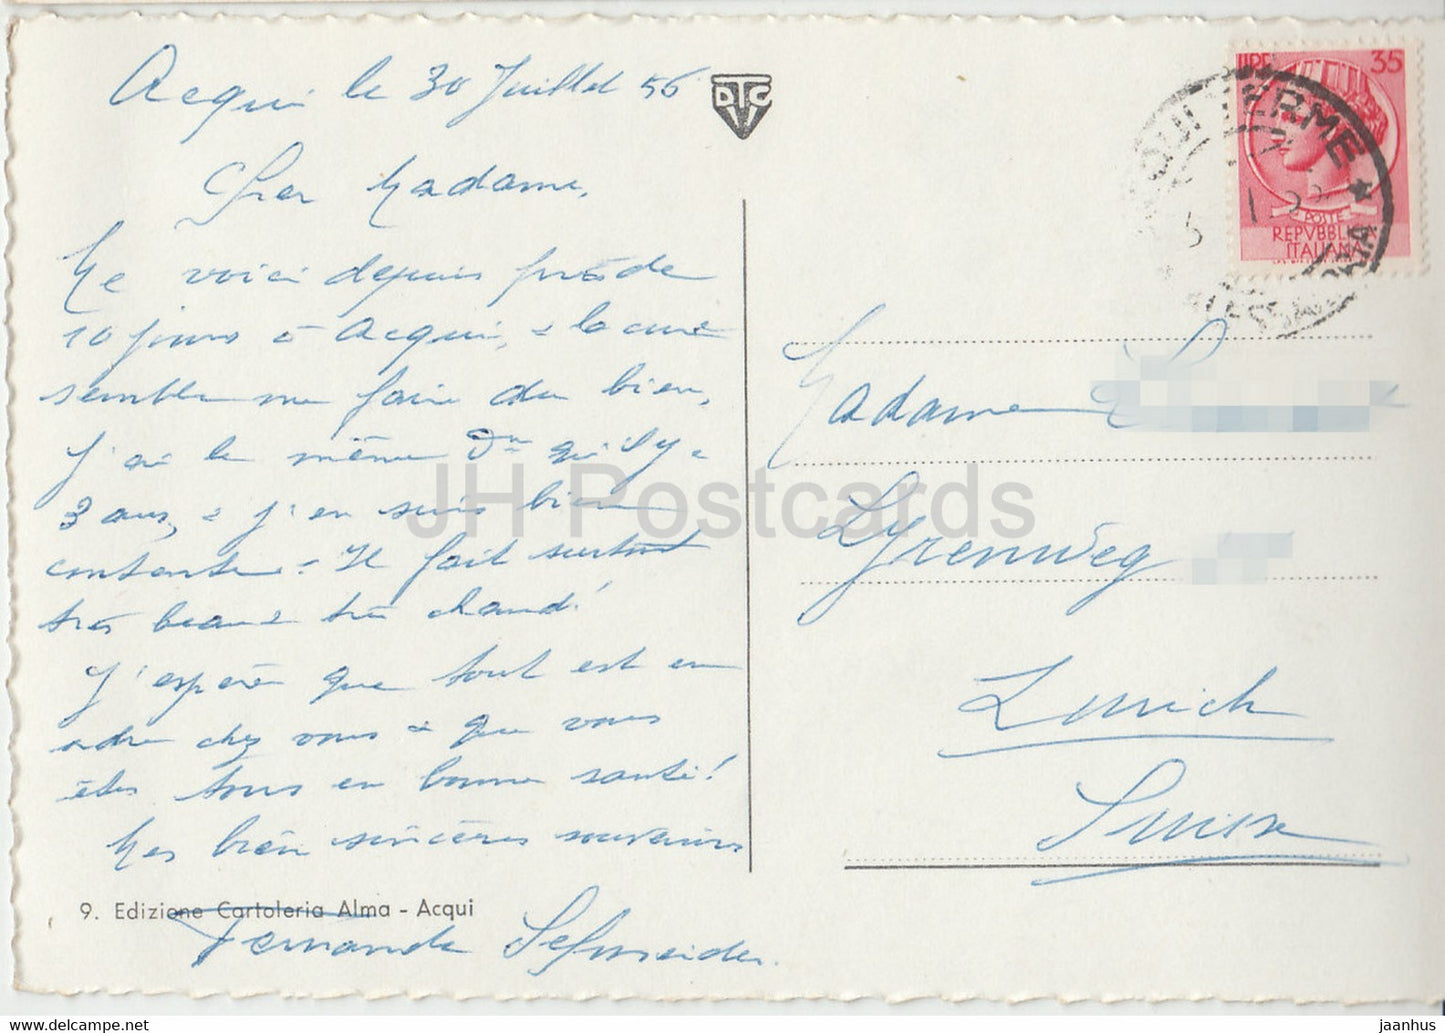 Acqui le 30 Juillet 56
Cher Madame,
Me voici depuis près de
10 jours à Acqui, & la cure
semble me faire du bien,
J'ai le même Dr qu'il y a
3 ans, & j'en suis bien
contente. Il fait surtout
très beau & très chaud!
J'espère que tout est en
ordre chez vous & que vous
êtes tous en bonne santé!
Mes bien sincères souvenirs
Fernande Schneider.
9. Edizione Cartoleria Alma - Acqui
DTC
LIRE 35
POSTE
REPVBBLICA
ITALIANA
ACQUI TERME
Madame
Lyrenweg
Zurich
Suisse
JH Postcards
jaanhus